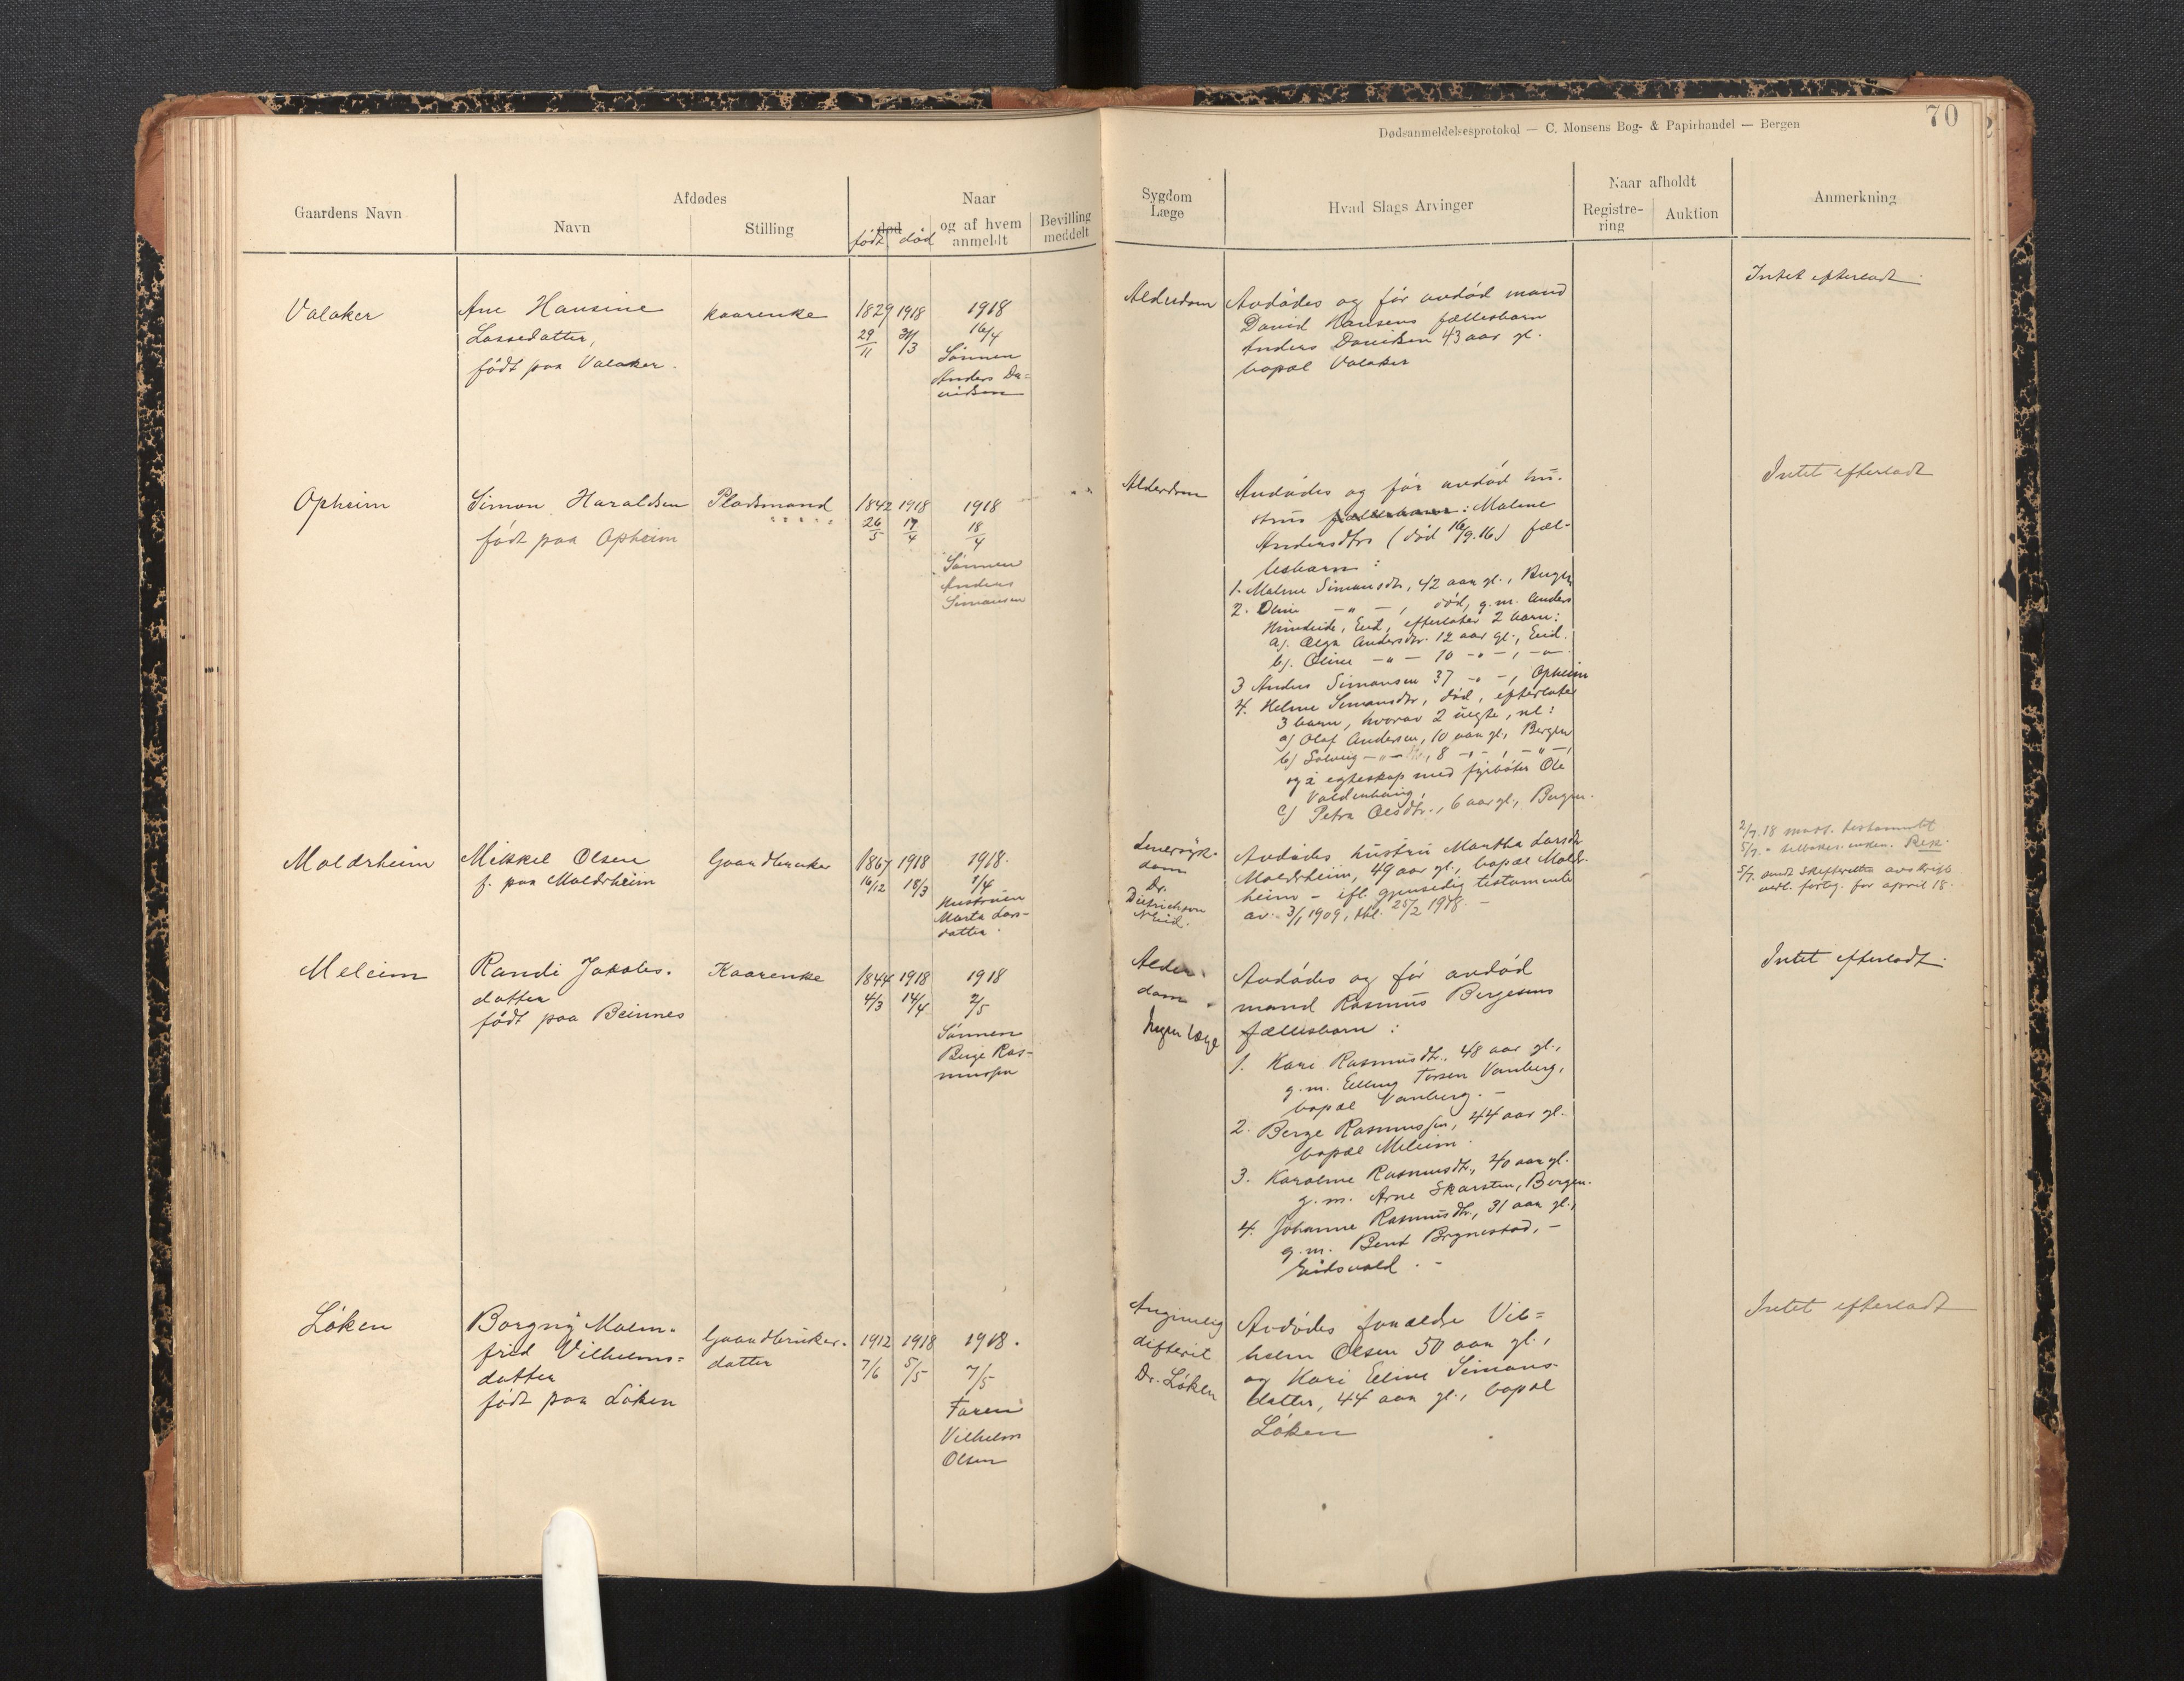 70
Dødsanmeldelsesprotokol — C. Monsens Bog- & Papirhandel — Bergen
Gaardens Navn
Afdødes
Navn
Stilling
død
født død
Naar
og af hvem
anmeldt
Bevilling
meddelt
Sygdom
Læge
Hvad Slags Arvinger
Naar afholdt
Registre-
ring
Auktion
Anmerkning
Valaker
Ane Hansine
Lassedatter,
født paa Valaker.
kaarenke
1829 1918
29/11 31/3
1918
16/4
Sønnen
Anders Da=
vidsen
Alderdom
Avdødes og før avdød mand
David Hansens fællesbarn
Anders Davidsen 43 aar gl.
bopæl Valaker
Intet efterladt.
Opheim
Simon Haraldsen
født paa Opheim
Pladsmand
1842 1918
26/5 17/4
1918
18/4
Sønnen
Anders
Simonsen
Alderdom
Avdødes og før avdød hu-
strus fællesbarn: Malene
Andersdtrs (død 16/9.16) fæl-
lesbarn:
1. Malene Simonsdtr, 42 aar gl., Bergen
2. Oline -"-, død, g.m. Anders
Hundeide, Eid, efterlater 2 barn:
a). Olga Andersdtr. 12 aar gl., Eid.
b). Oline -"- 10 -"-, -"-
3 Anders Simonsen 37 -"-, Opheim
4. Helene Simonsdtr, død, efterlater
3 barn, hvorav 2 uegte, nl:
a) Olaf Andersen, 10 aar gl., Bergen
b) Solveig -"- 8 -"-, -"-,
og i egteskap med fyrbøter Ole
c) Petra Olsdtr., 6 aar gl., Bergen.
Intet efterladt
Moldrheim
Mikkel Olsen
f. paa Moldrheim
Gaardbruker
1867 1918
16/12 18/3
1918.
1/4
Hustruen
Marta Lars-
datter.
Leversyk-
dom
Dr.
Dietrichson
N.eid.
Avdødes hustru Martha Larsdtr
Moldrheim, 49 aar gl., bopæl Moldr-
heim - ifl. gjensidig testamente
av 3/1 1909, thl. 25/2 1918. -
2/7.18 mott. testamentet
5/7. " tilbakesenden. Rek.
5/7. sendt Skifteretten avskrift
vedl. fortg. for april 18.
Meleim
Randi Jakobs-
datter
født paa Beinnes
Kaarenke
1844 1918
4/3 14/4
1918
2/5
Sønnen
Berge Ras-
mussen
Alder-
dom
Ingen læge
Avdødes og før avdød
mand Rasmus Bergesens
fællesbarn:
1. Kari Rasmusdtr. 48 aar gl.,
g.m. Elling Tørsen Vanberg,
bopæl Vanberg. -
2. Berge Rasmussen, 44 aar gl.
bopæl Meleim.
3. Karoline Rasmusdtr., 40 aar gl.
g.m. Arne Skarsten, Bergen.
4. Johanne Rasmusdtr., 31 aar gl.,
g.m. Bent Brynestad, -
Eidsvold. -
Intet efterladt.
Løken
Borgny Malm-
frid Vilhelms=
datter
født paa Løken
Gaardbruker-
datter
1912 1918
7/6 5/5
1918.
7/5
Faren
Vilhelm
Olsen
Ondartet
difterit
Dr. Løken
Avdødes forældre Vil=
helm Olsen 50 aar gl.,
og Kari Eline Simons-
datter, 44 aar gl., bopæl
Løken
Intet efterladt